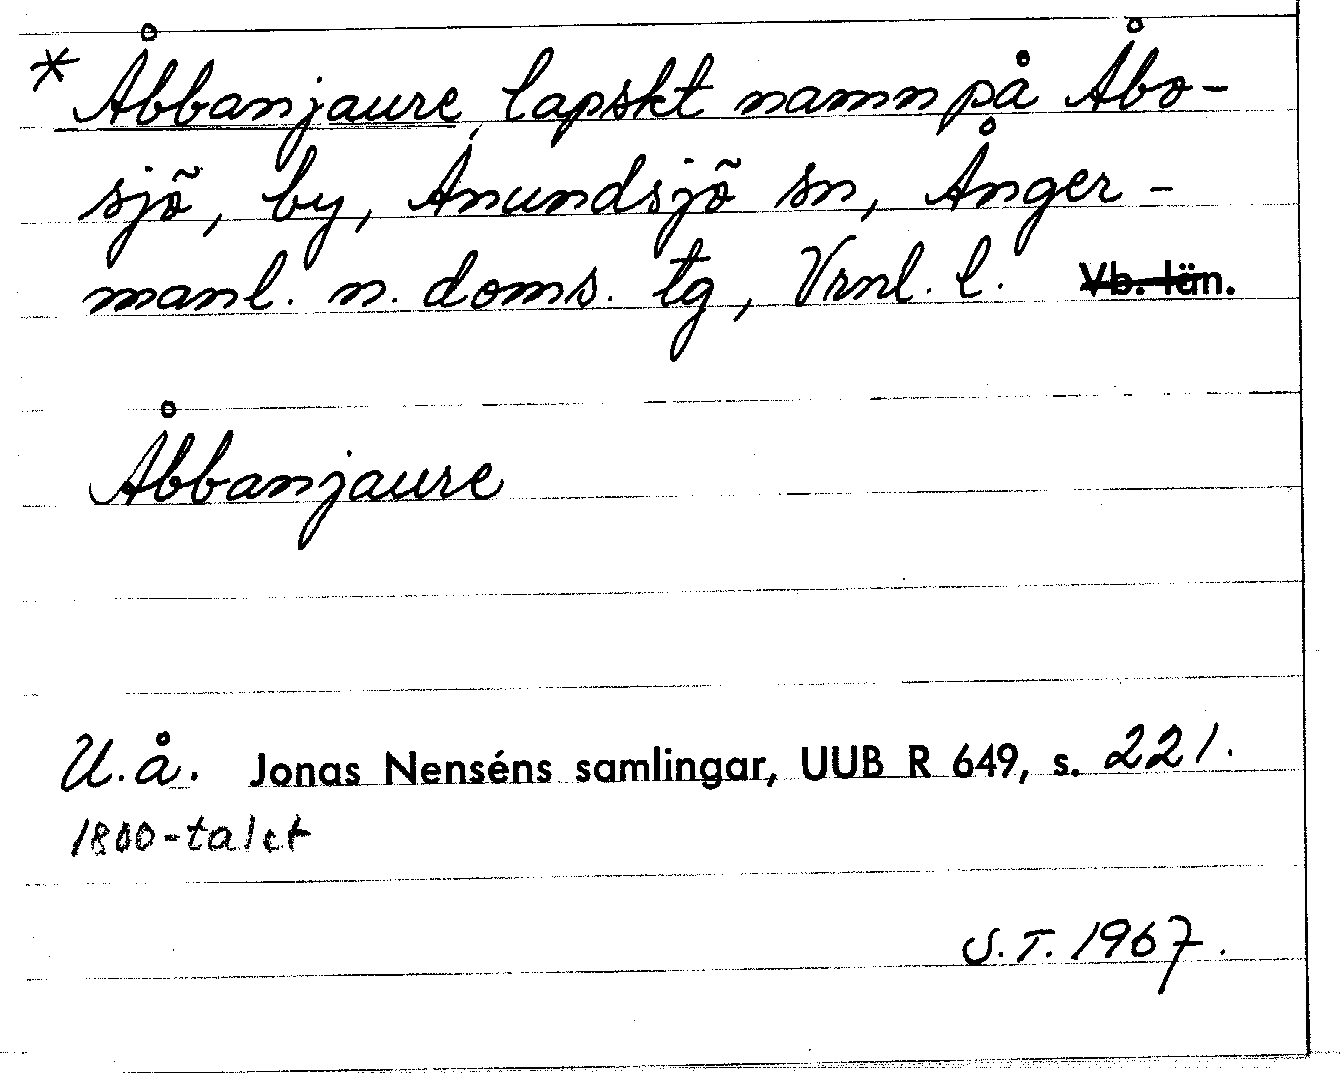 * Åbbanjaure, lapskt namn på Åbo-
sjö, by, Anundsjö sn, Ånger-
manl. n. doms. tg, Vrnl. l. Vb. län.
Åbbanjaure
U.å. Jonas Nenséns samlingar, UUB R 649, s. 221.
1800-talet
S.T. 1967.